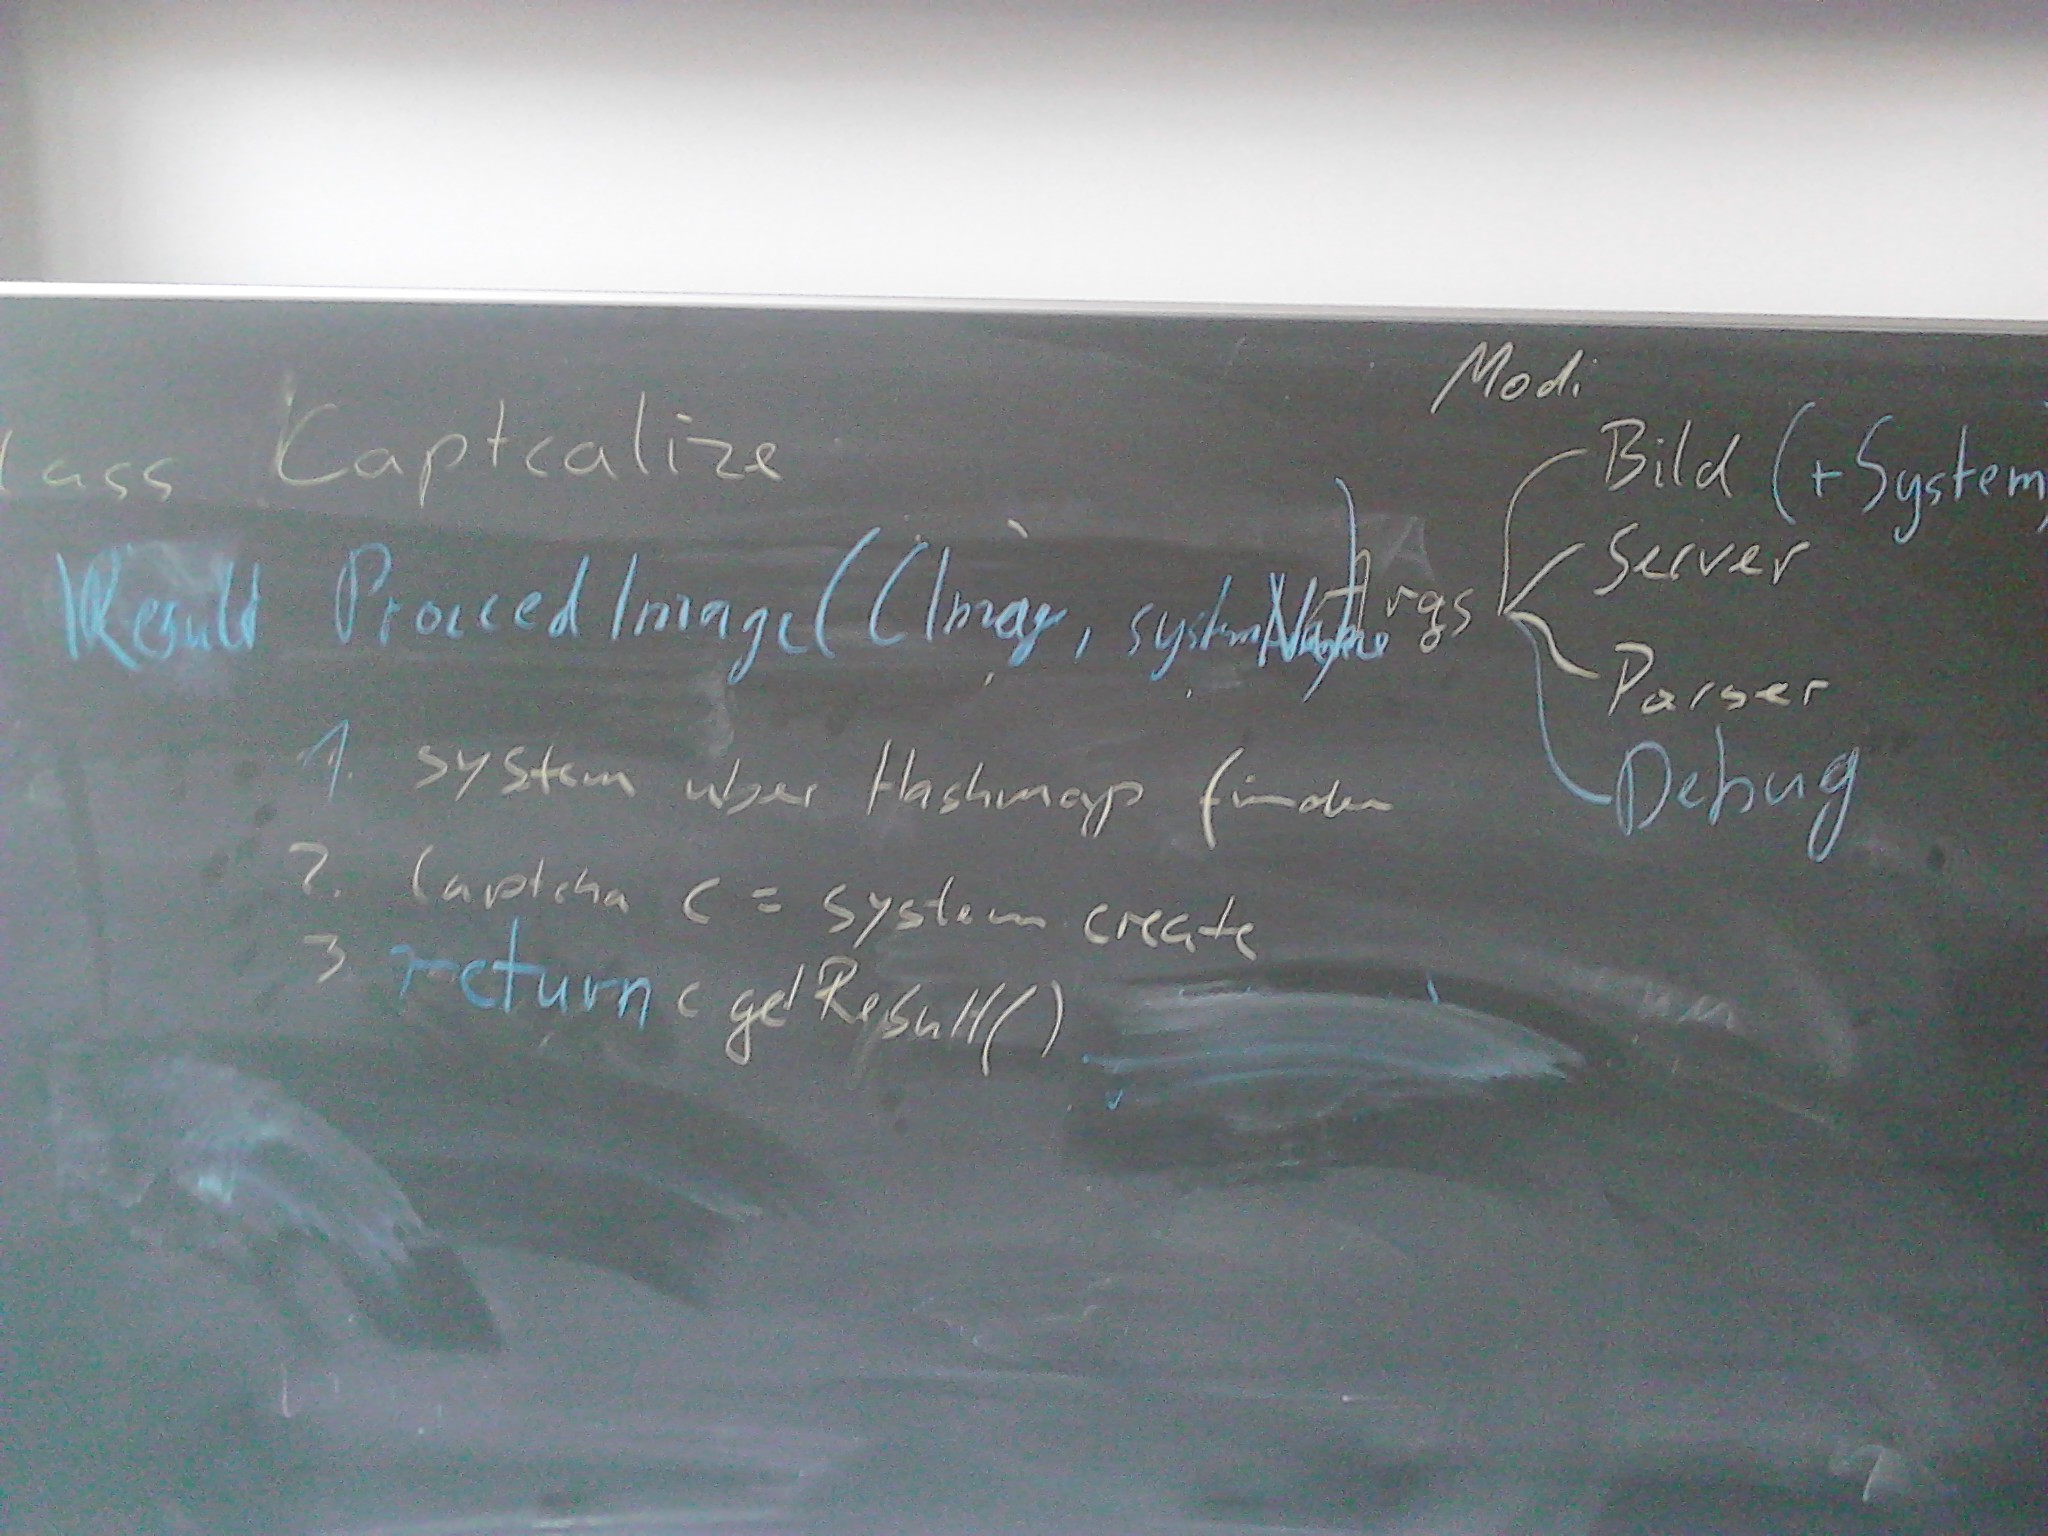 lass Captcalize
Result ProceedImage(CImag, systemName)
1. system über Hashmap finden
2. Captcha c = system.create
3 return c getResult()
Modi
Args
Bild (+System)
Server
Parser
Debug